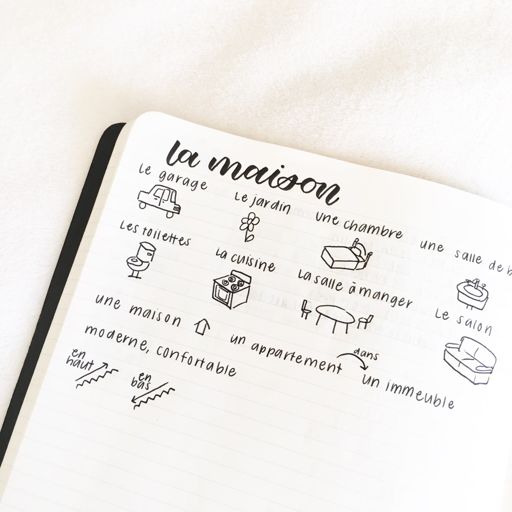 la maison
le garage
le jardin
une chambre
une salle de b
les toilettes
la cuisine
la salle à manger
le salon
une maison
un appartement
dans
un immeuble
moderne, confortable
en haut
en bas